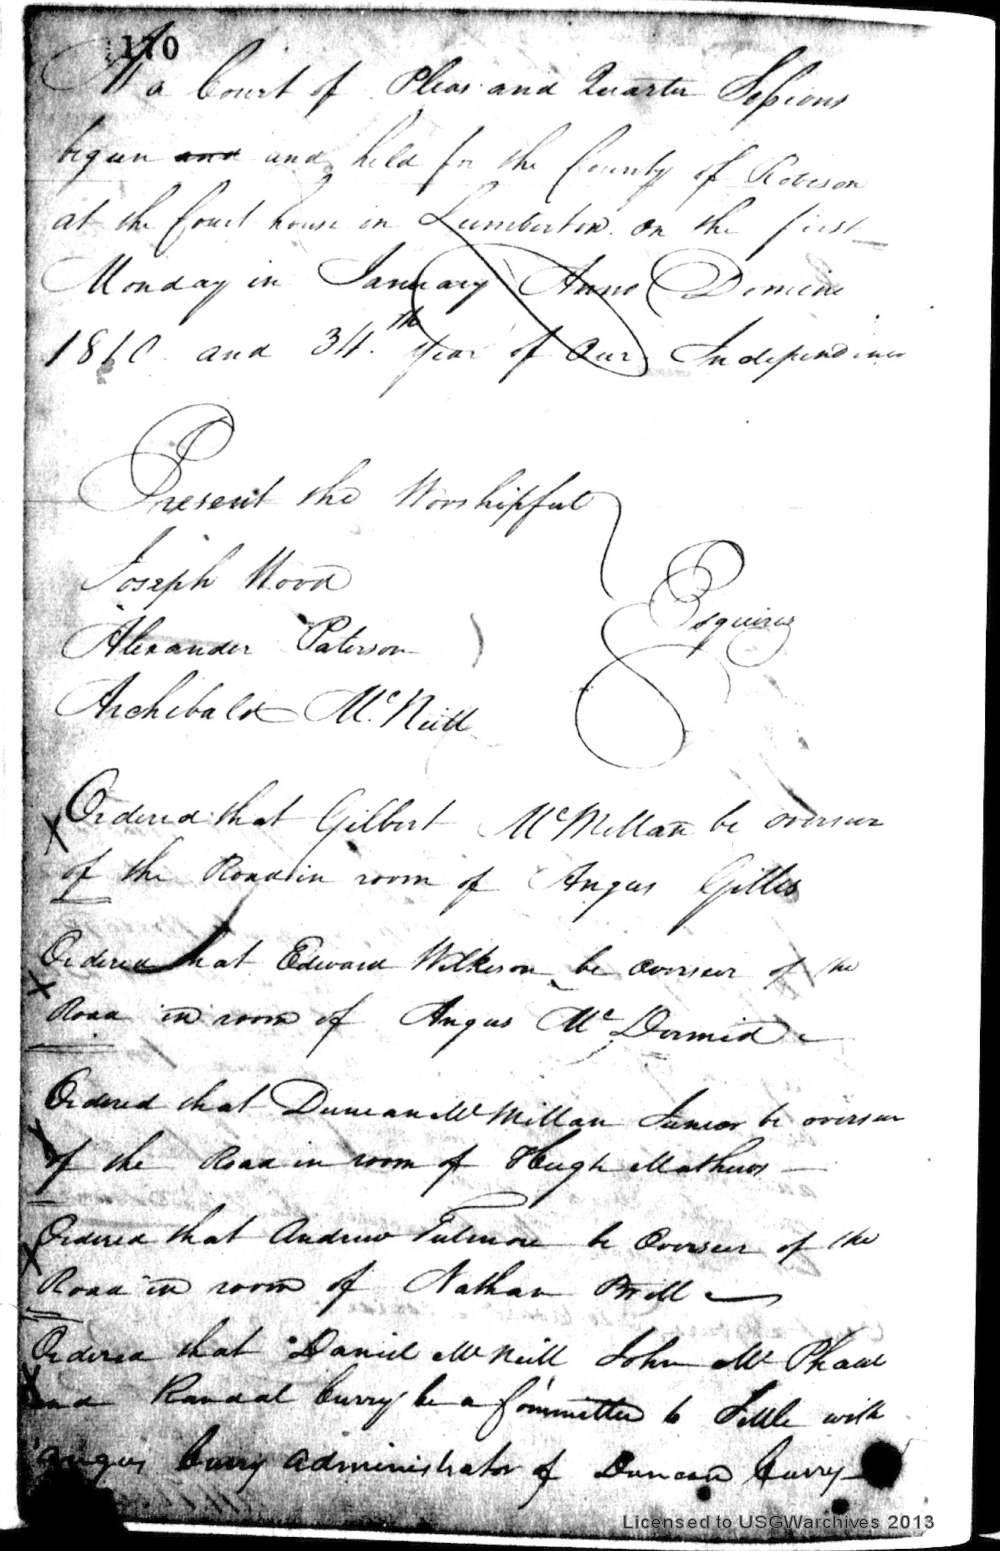 170
At a Court of Pleas and Quarter Sessions
begun and and held for the County of Robeson
at the Court house in Lumberton on the first
Monday in January Anno Domini
1810 and 34th year of Our Independence
Present the Worshipful
Joseph Wood
Alexander Paterson
Esquires
Archibald McNeill
Ordered that Gilbert McMillan be overseer
of the Road in room of Angus Gillis
Ordered that Edward Wilkerson be overseer of the
Road in room of Angus McDormid
Ordered that Duncan McMillan Junior be overseer
of the Road in room of Hugh Mathews
Ordered that Andrew Fulmore be Overseer of the
Road in room of Nathan
Ordered that Daniel McNeill John McPhaul
and Randal Curry be a Committee to Settle with
Angus Curry administrator of Duncan Curry
Licensed to USGWarchives 2013